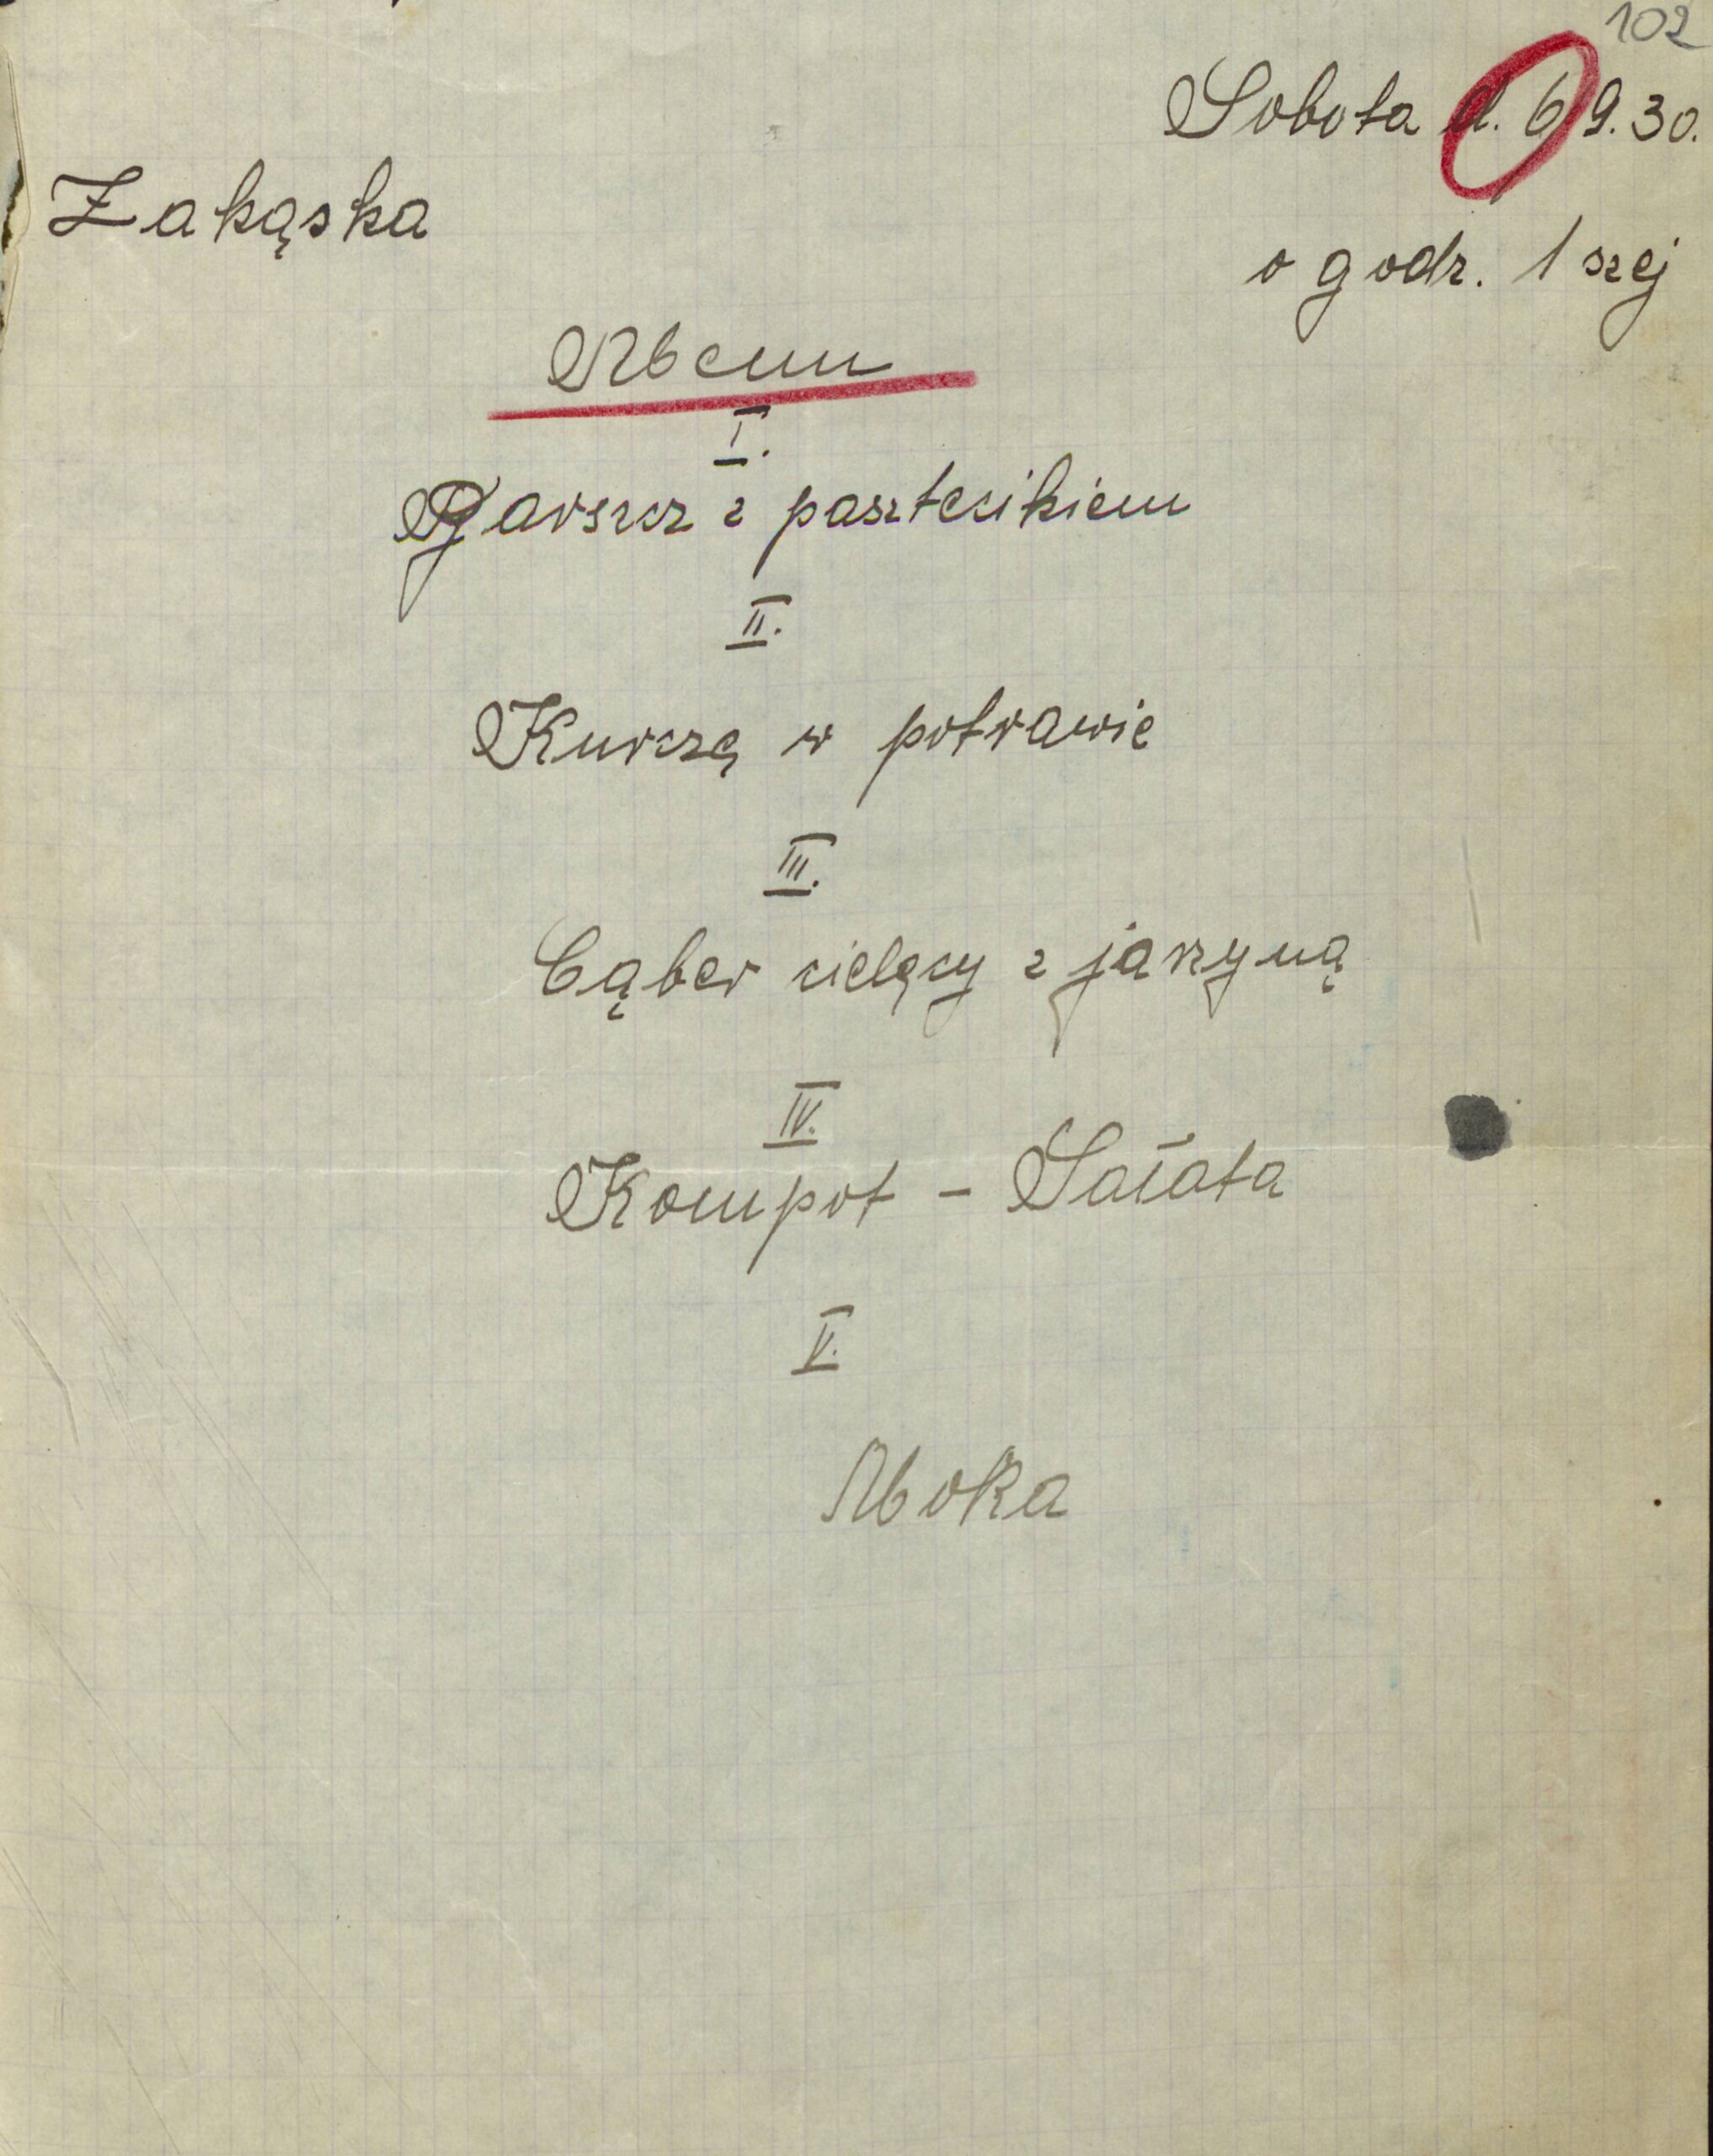 102
Sobota d. 6 9.30.
Zakąska
o godz. 1 szej
Menu
I.
Barszcz z pasztecikiem
II.
Kurczę w potrawie
III.
Cąber cielęcy z jarzyną
IV.
Kompot - Sałata
V.
Moka